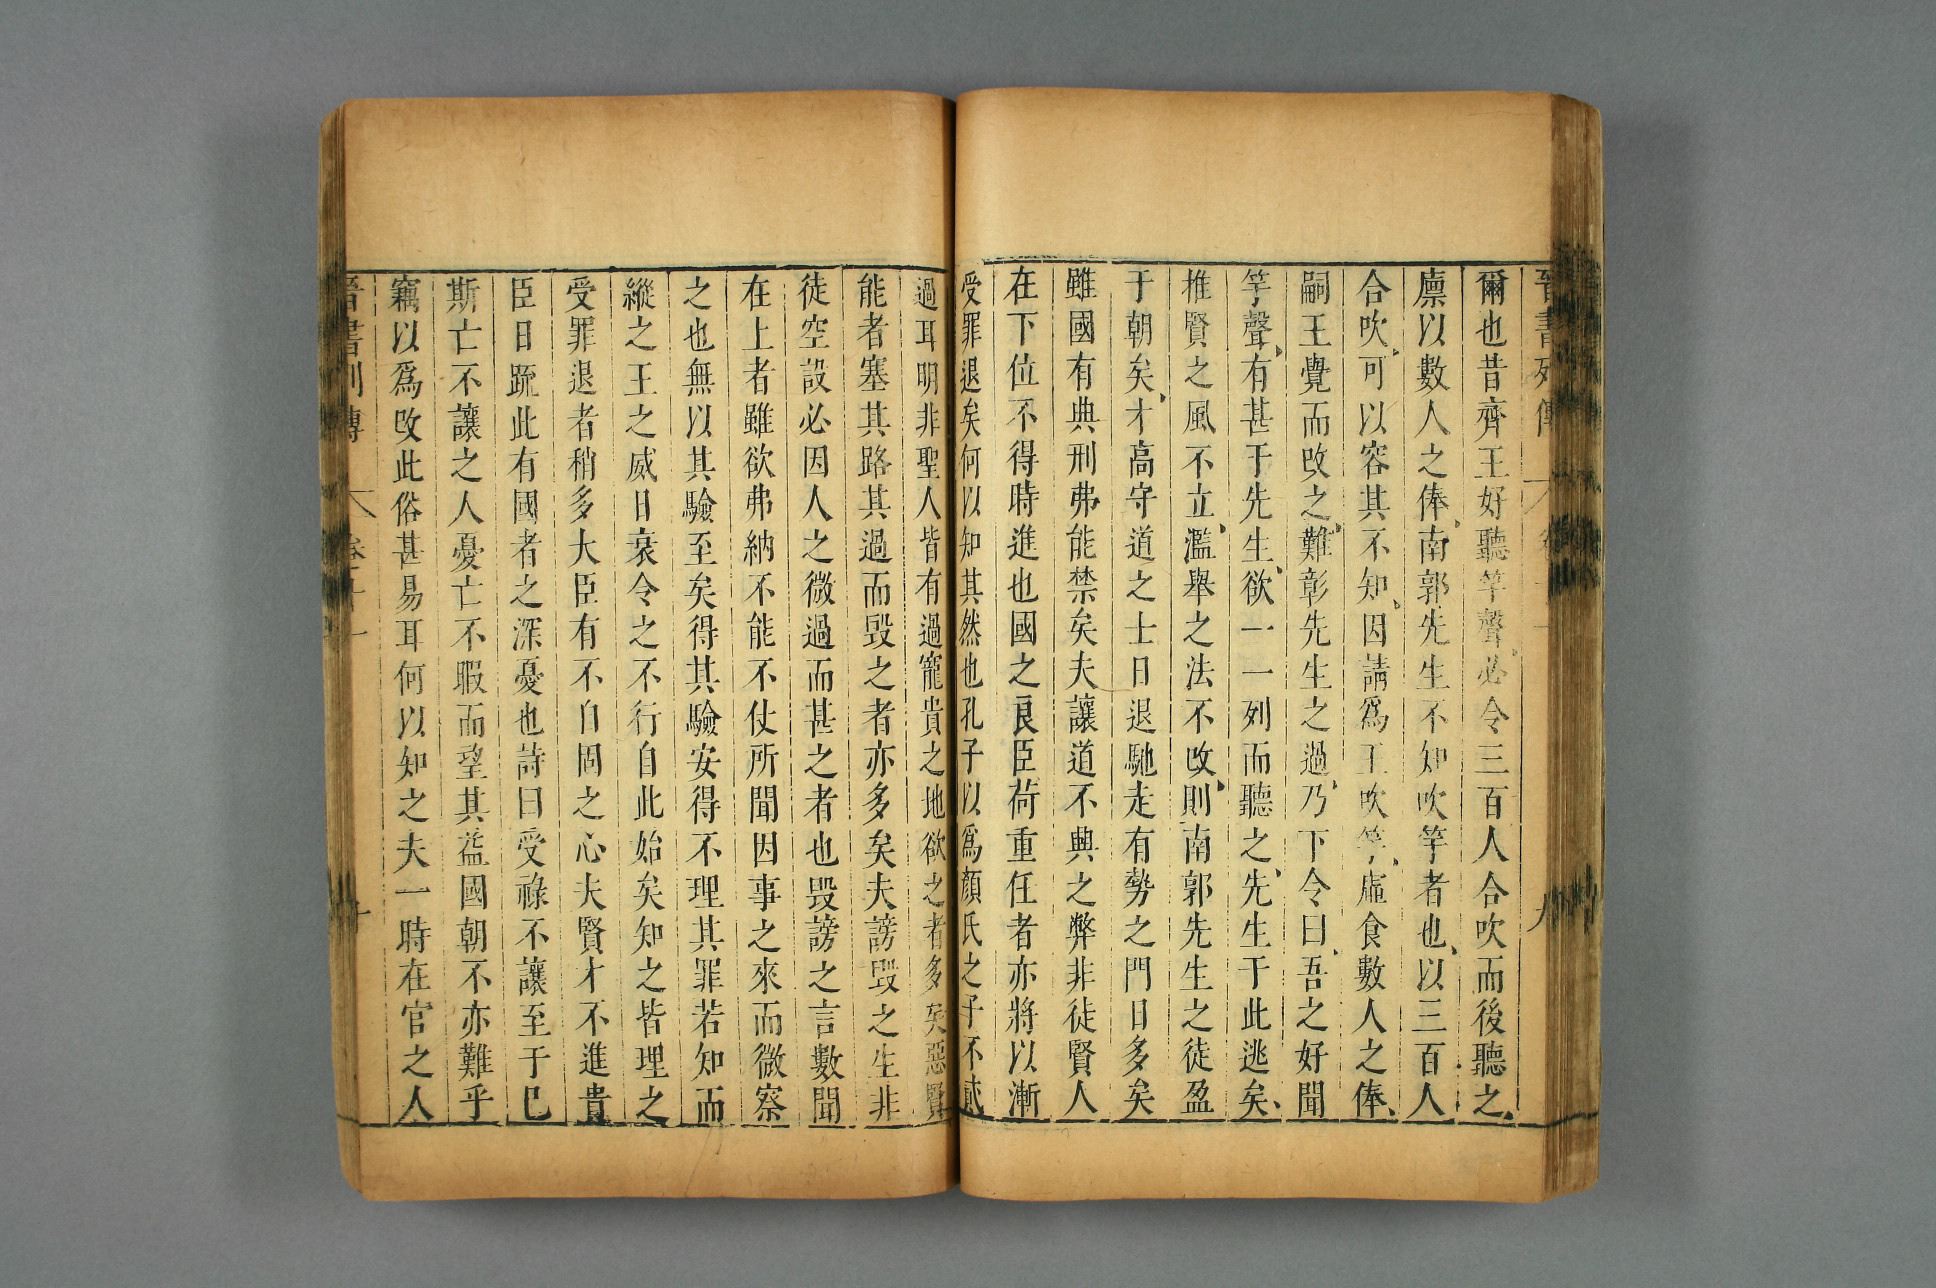 晉書列傳
爾也昔齊王好聽竽聲必令三百人合吹而後聽之
廪以數人之俸南郭先生不知吹竽者也以三百人
合吹可以容其不知因請爲王吹竽虛食數人之俸
嗣王覺而改之難彰先生之過乃下令曰吾之好聞
竽聲有甚于先生欲一一列而聽之先生于此逃矣
推賢之風不立濫舉之法不改則南郭先生之徒盈
于朝矣才高守道之士日退馳走有勢之門日多矣
雖國有典刑弗能禁矣夫讓道不興之弊非徒賢人
在下位不得時進也國之良臣荷重任者亦將以漸
受罪退矣何以知其然也孔子以爲顏氏之子不貳
過耳明非聖人皆有過寵貴之地欲之者多矣惡賢
能者塞其路其過而毀之者亦多矣夫謗毀之生非
徒空設必因人之微過而甚之者也毀謗之言數聞
在上者雖欲弗納不能不仗所聞因事之來而微察
之也無以其驗至矣得其驗安得不理其罪若知而
縱之王之威日衰令之不行自此始矣知之皆理之
受罪退者稍多大臣有不自固之心夫賢才不進貴
臣日疏此有國者之深憂也詩曰受祿不讓至于已
斯亡不讓之人憂亡不暇而望其益國朝不亦難乎
竊以爲改此俗甚易耳何以知之夫一時在官之人
晉書列傳